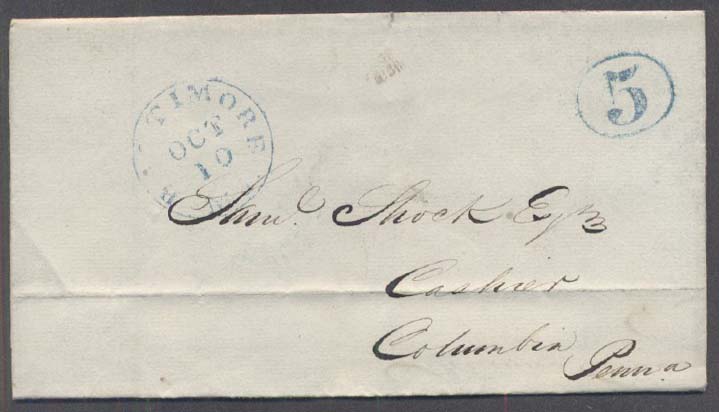 TIMORE
OCT
10
5
Saml. Shock Esqr
Cashier
Columbia Penna